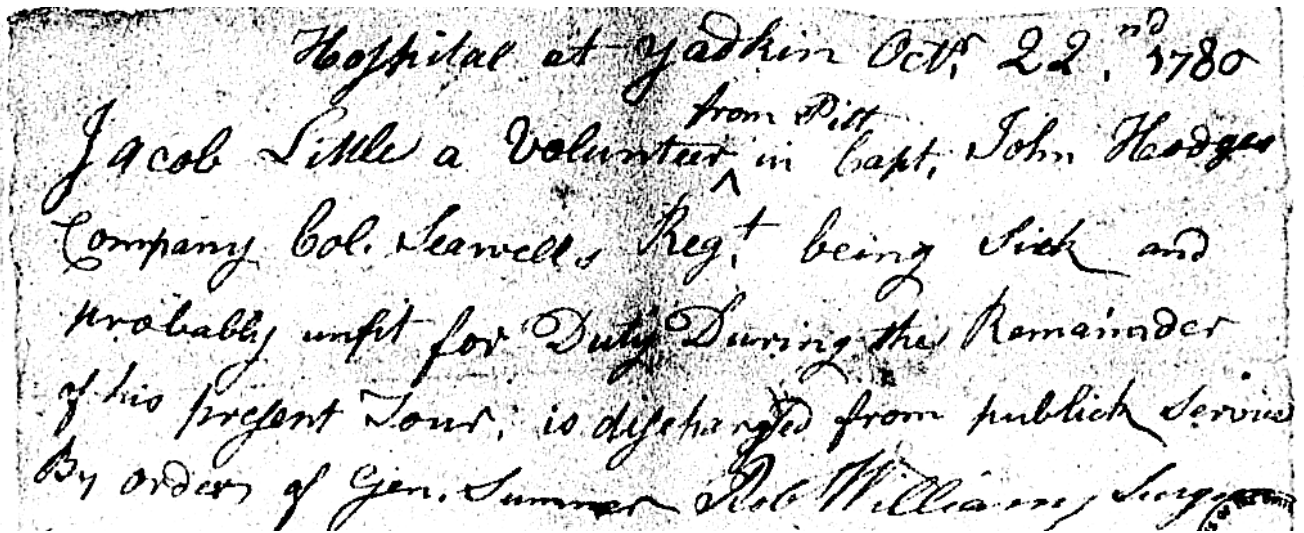 Hospital at Yadkin Octr. 22.nd 1780
from Pitt
Jacob Little a Volunteer ^ in Capt. John Hodges
Company Col. Seawells Regt. being Sick and
probably unfit for Duty During the Remainder
of his present Tour, is discharged from publick Service
By order of Gen. Sumner Rob Williams Surgeon